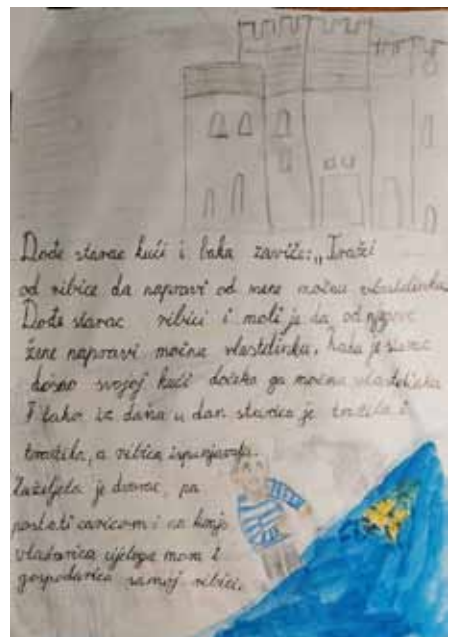 Dođe starac kući i baka zaviče: „Traži
od ribice da napravi od mene moćnu vlastelinku
Dođe starac ribici i moli je da od njegove
žene napravi moćnu vlastelinku. Kada je starac
došao svojoj kući dočeka ga moćna vlastelinka
I tako iz dana u dan starica je tražila i
tražila, a ribica ispunjavala.
Zaželjela je dvorac, pa
postati caricom i na kraju
vladarica cijeloga mora i
gospodarica samoj ribici.